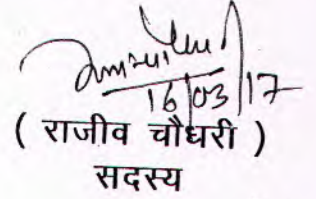 16/03/17
( राजीव चौधरी )
सदस्य